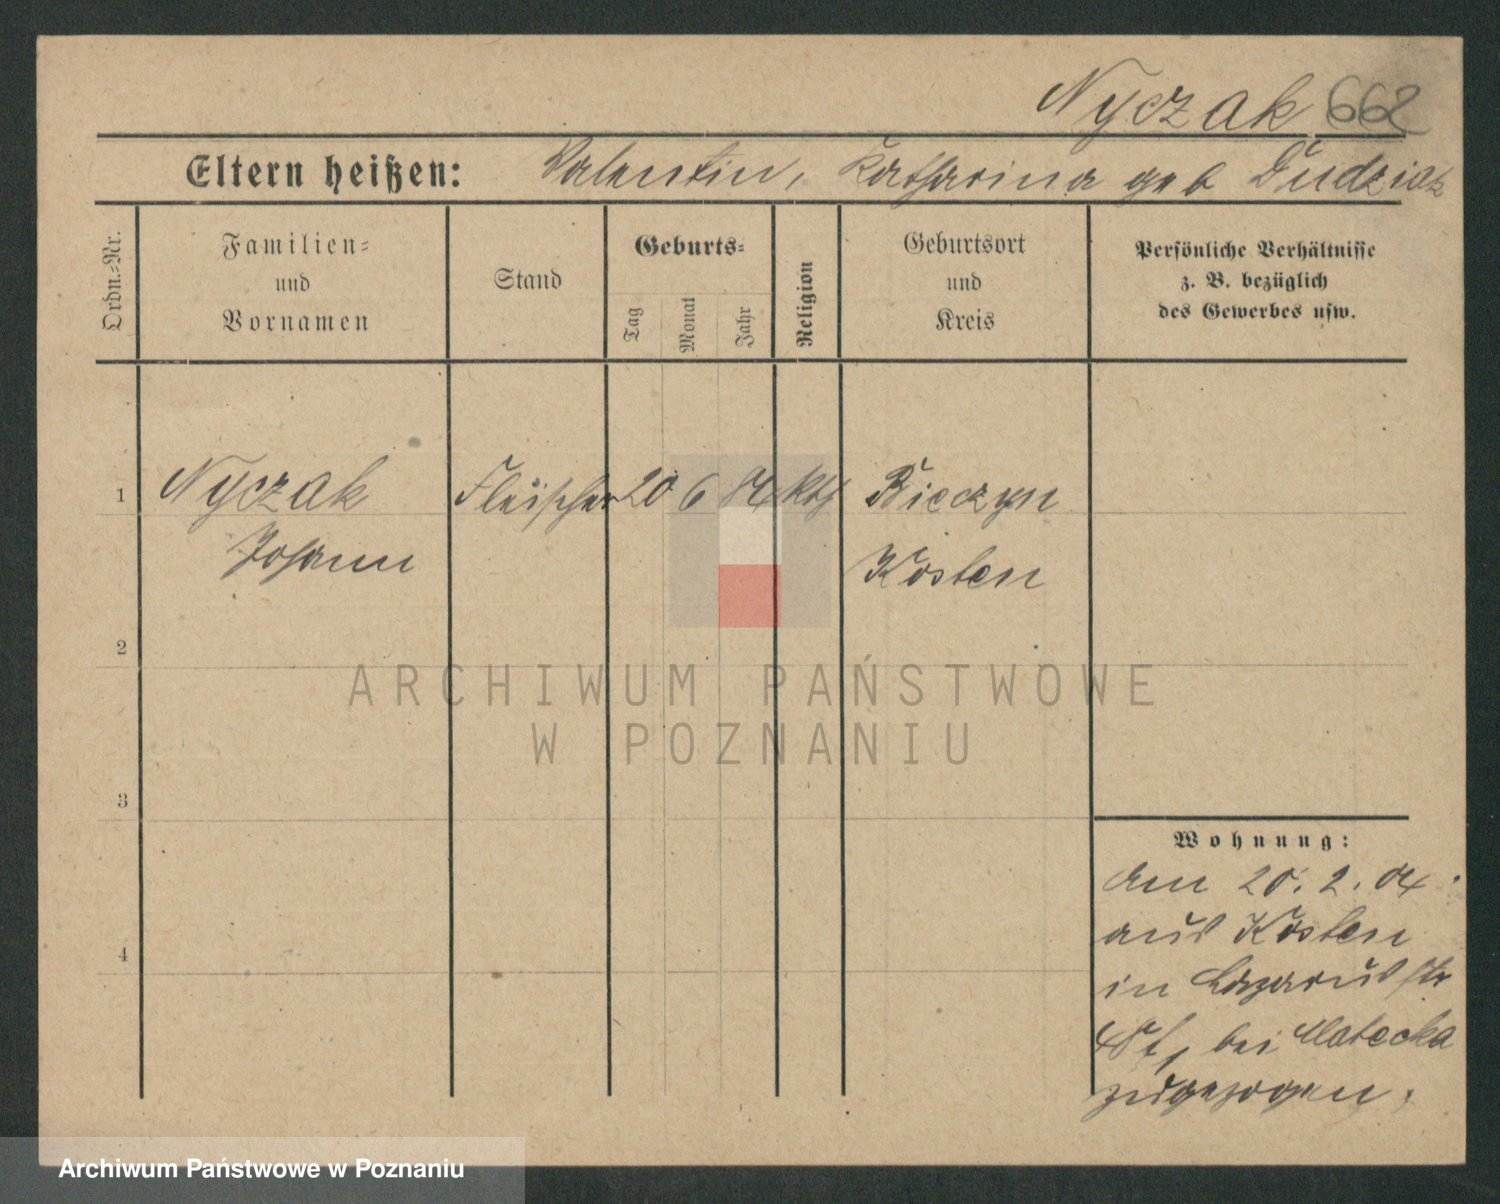 Nyczak 662
Eltern heißen: Valentin, Katharina geb Dudziak
Ordn.-Nr.
Familien-
und
Vornamen
Stand
Geburts-
Tag
Monat
Jahr
Religion
Geburtsort
und
Kreis
Persönliche Verhältnisse
z. B. bezüglich
des Gewerbes usw.
1 Nyczak Fleischer 20 6 84 kth Bieczyn
Johann Kosten
2
3
4
Wohnung:
Am 20. 2. 04
aus Kosten
in Lazarus str
bei Matecka
zugezogen.
ARCHIWUM PAŃSTWOWE
W POZNANIU
Archiwum Państwowe w Poznaniu